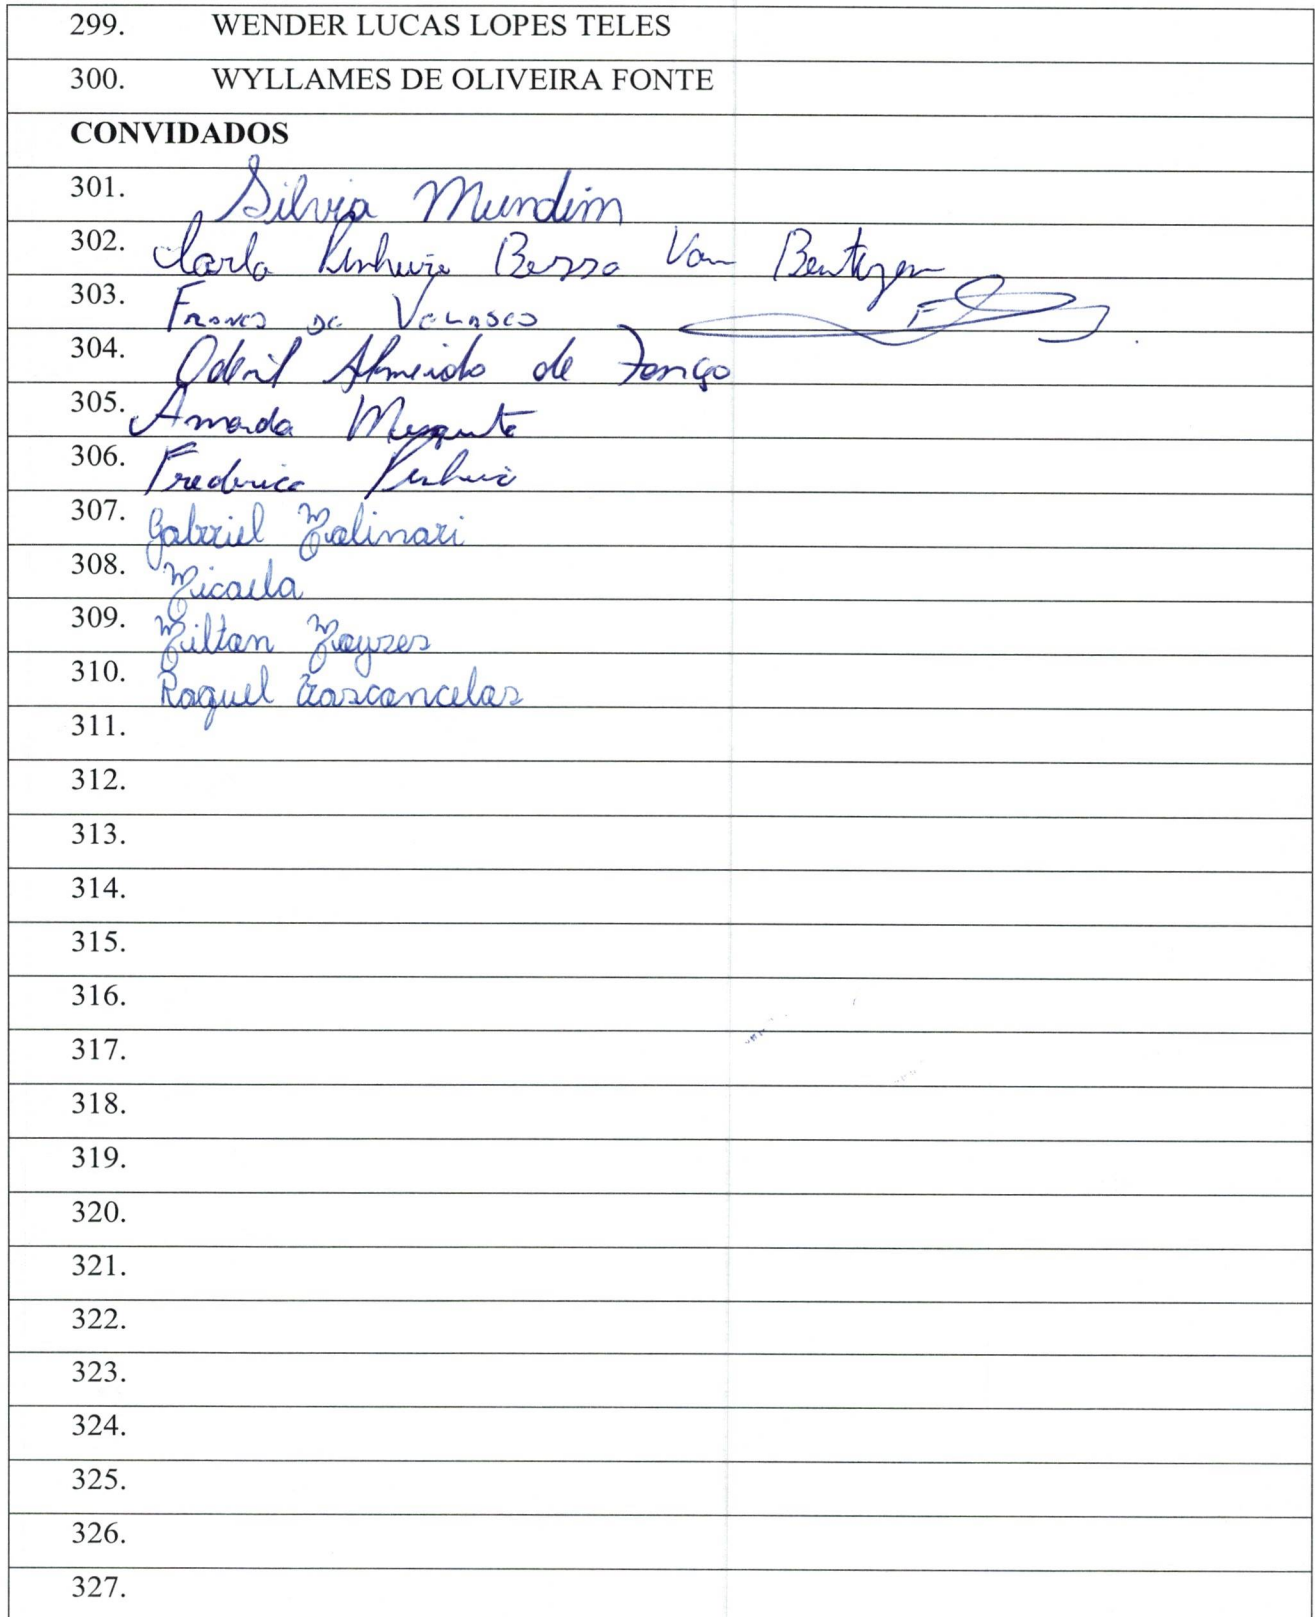 299. WENDER LUCAS LOPES TELES
300. WYLLAMES DE OLIVEIRA FONTE
CONVIDADOS
301. Silvia Mundim
302. Carla Pinheiro Bessa Von
303. de Velasco
304. Almeida de
305. Amanda Mesquita
306. Frederico Pinheiro
307. Gabriel Molinari
308. Micaela
309. Milton Moyses
310. Raquel
311.
312.
313.
314.
315.
316.
317.
318.
319.
320.
321.
322.
323.
324.
325.
326.
327.